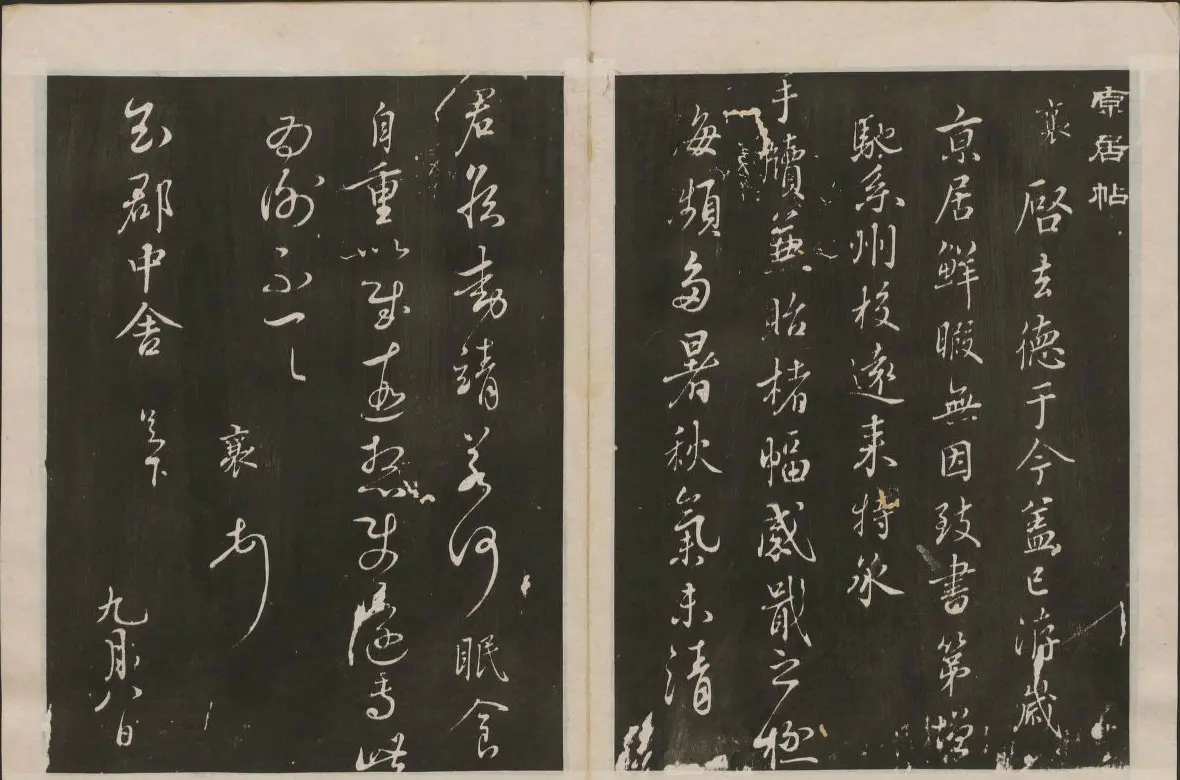 京居帖
襄啓去德于今蓋已㳺歲
京居鮮暇無因致書第增
馳系州校遠来特承
手牘兼貽楮幅感戢之極
海瀕多暑秋氣未清
君侯動靖若何眠食
自重以對
為謝不一一
襄
公郡中舍足下
九月八日